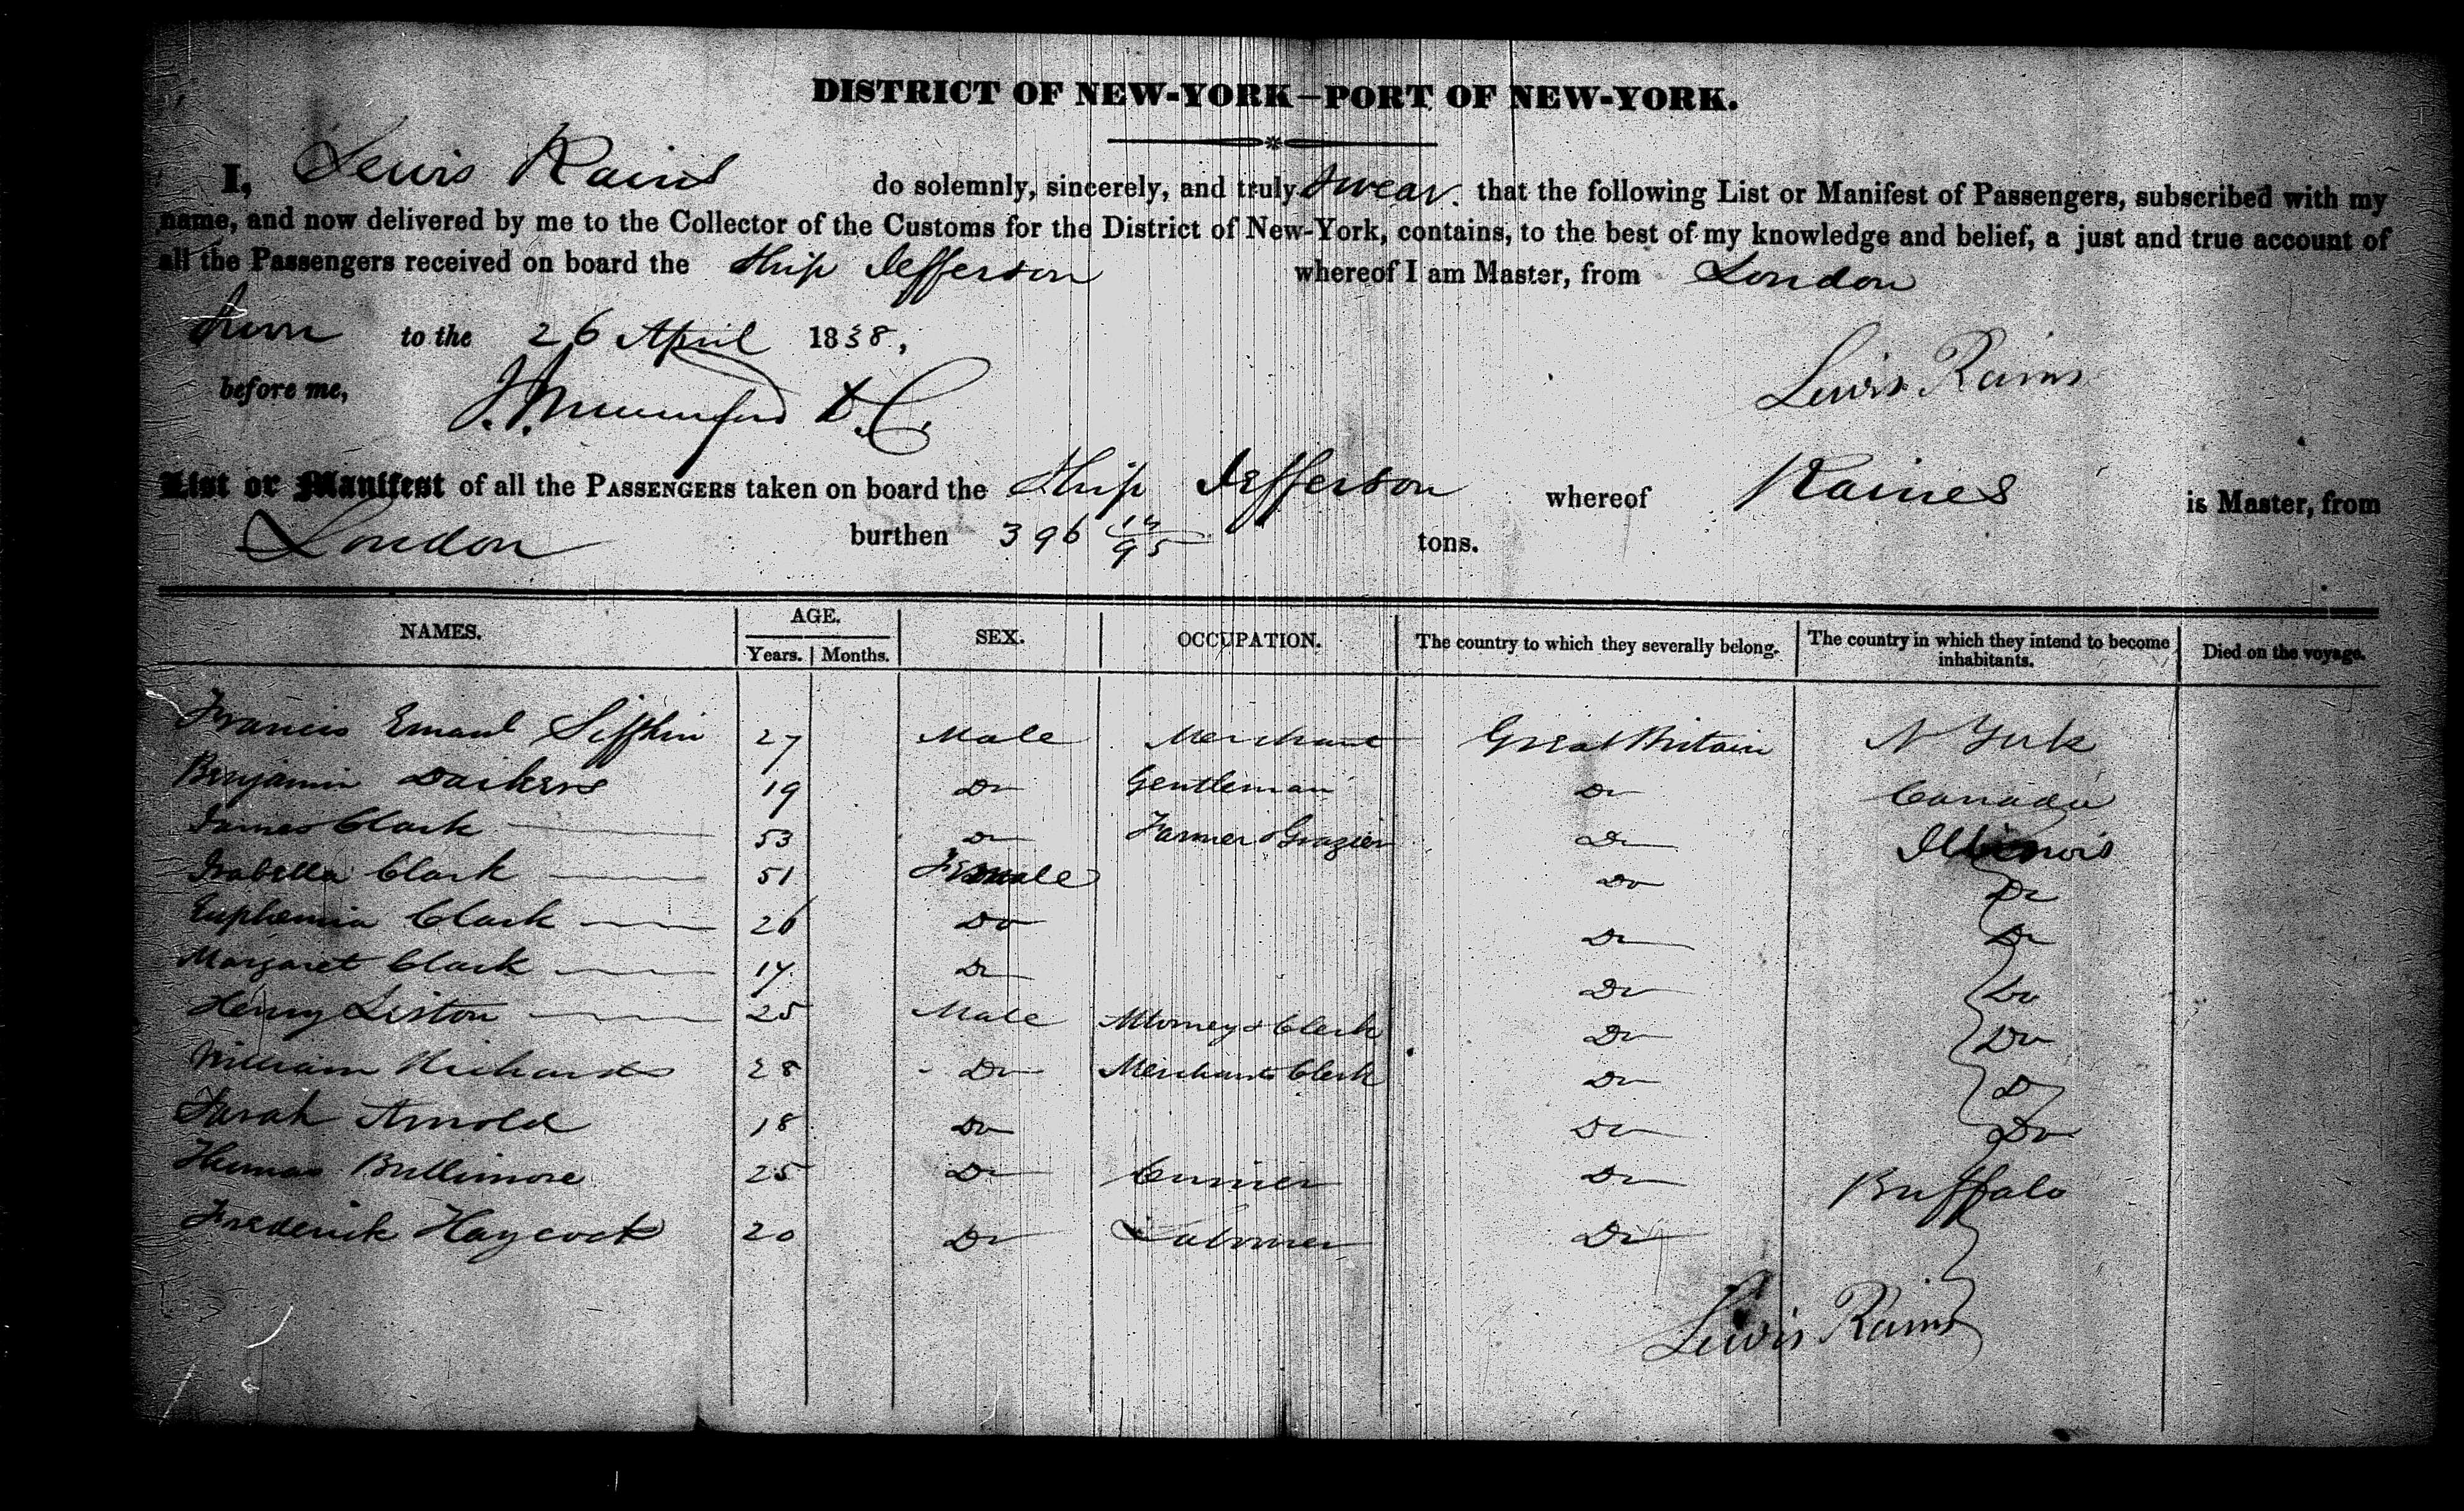 DISTRICT OF NEW-YORK—PORT OF NEW-YORK.
I, Lewis Rains do solemnly, sincerely, and truly swear that the following List or Manifest of Passengers, subscribed with my
name, and now delivered by me to the Collector of the Customs for the District of New-York, contains, to the best of my knowledge and belief, a just and true account of
all the Passengers received on board the Ship Jefferson whereof I am Master, from London
to the 26 April 1838,
Lewis Rains
before me, D. C.
List or Manifest of all the PASSENGERS taken on board the Ship Jefferson whereof Raines is Master, from
London burthen 396 /95 tons.
NAMES. AGE. SEX. OCCUPATION. The country to which they severally belong. The country in which they intend to become inhabitants. Died on the voyage.
Years. Months.
Francis Siffkin 27 Male Merchant Great Britain N York
Benjamin 19 Do Gentleman Do Canada
James Clark 53 Do Farmer & Grazier Do Illinois
Isabella Clark 51 Female Do Do
Euphemia Clark 26 Do Do Do
Margaret Clark 17 Do Do Do
Henry Liston 25 Male Attorney & Clerk Do Do
William Richards 28 Do Merchants Clerk Do Do
Sarah Arnold 18 Do Do Do
Bullimore 25 Do Currier Do Buffalo
Frederick Haycock 20 Do Labourer Do
Lewis Rains